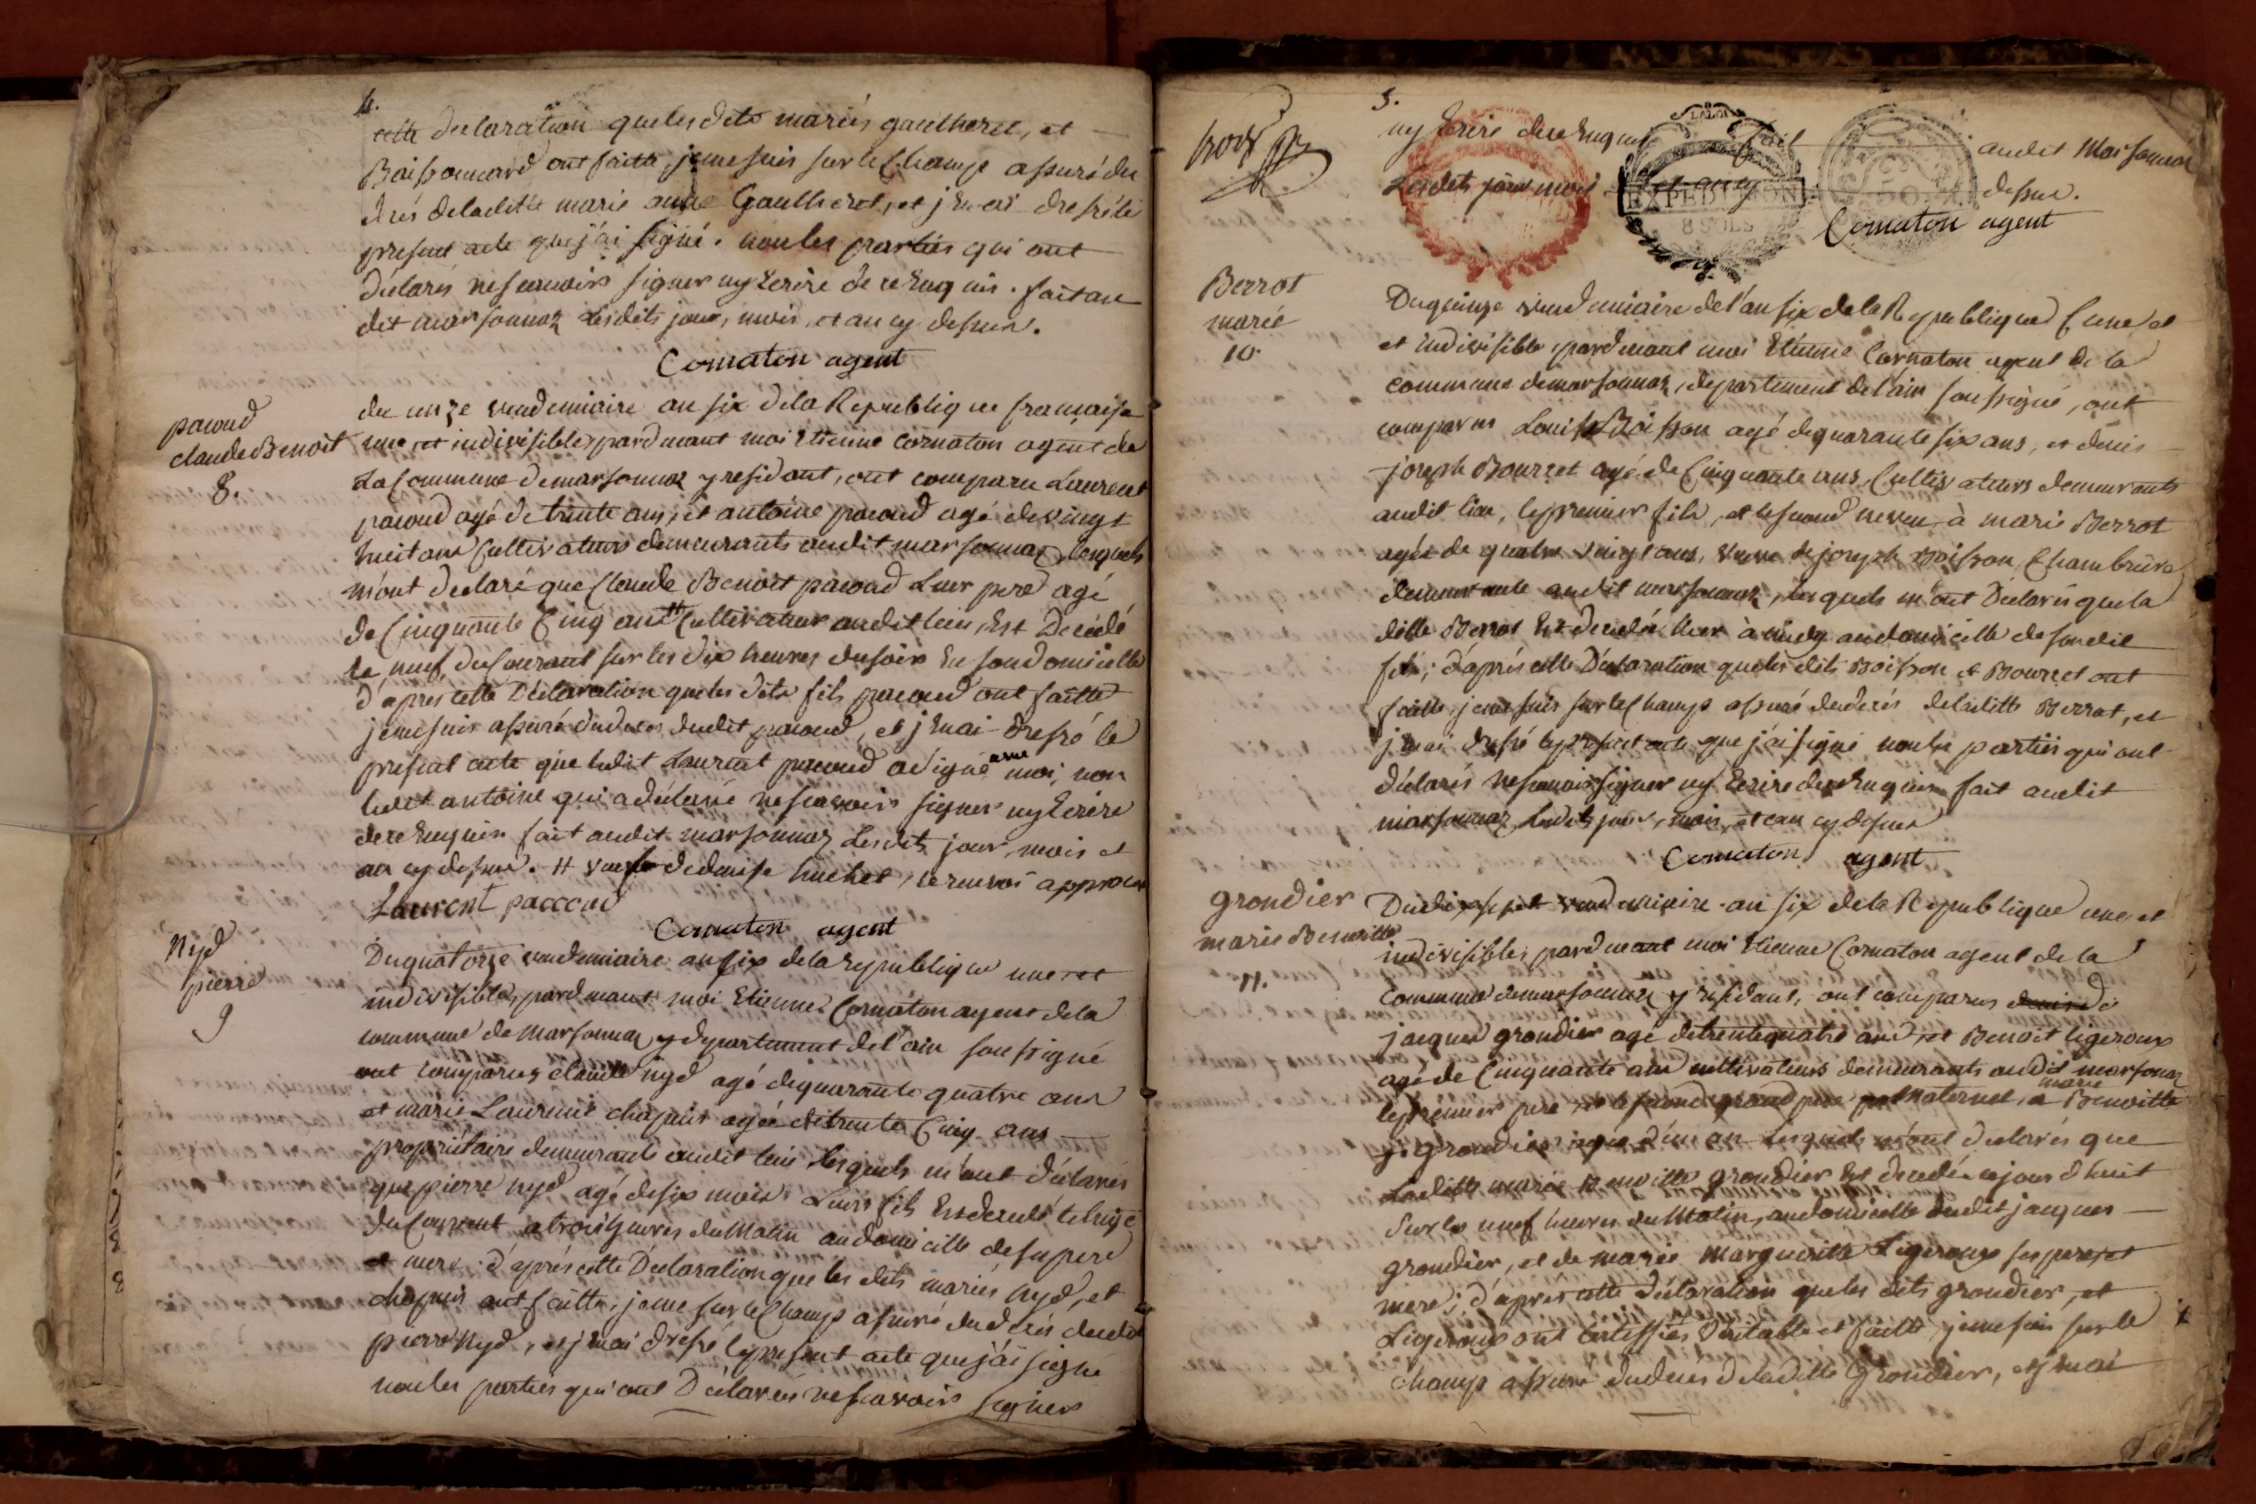 4.
cette declaration que lesdits mariés gaulherel, et
Boissonnard ont faitte, je me suis sur le Champ assuré du
décés de la ditte marie anne Gaulherel, et j'en ai dressé le
present acte que j'ai signé. non les parties qui ont
Declarés ne scavoir signer ny Ecrire de ce Enquis. fait au
dit marsonnaz Lesdits jour, mois, et an cy dessus.
Cornaton agent
pacoud
claude Benoit
8.
du onze vendemiaire an six de la Republique francaise
une et indivisible, pardevant moi Etienne Cornaton agent de
La Commune de marsonnaz y residant, ont comparu Laurent
pacoud agé de trente ans, et antoine pacoud agé de vingt
huit ans Cultivateurs demeurants audit marsonnaz Lesquels
m'ont declaré que Claude Benoit pacoud Leur pere agé
de Cinquante Cinq ans # Cultivateur audit lieu, Est Decedé
le neuf du Courant sur les dix heures du soir En son domicille
d'apres cette Declaration que les dits fils pacoud ont faitte
je me suis assuré du deces dudit pacoud, et j'En ai dressé le
present acte que ledit Laurent pacoud a signé avec moi, non
ledit antoine qui a declaré ne scavoir signer ny Ecrire
de ce Enquis fait audit marsonnaz Lesdits jour, mois et
an cy dessus. # veuf de denise huchet, le renvoi approuvé
Laurent paccoud
Cornaton agent
Nyd
pierre
9
Du quatorze vendemiaire an six de la republique une et
indivisible, pardevant moi Etienne Cornaton agent de la
commune de marsonnaz y departement de l'ain soussigné
ont comparus claude nyd agé de quarante quatre ans
et marie Laurence chapuis agée de trente Cinq ans
proprietaire demeurants audit lieu Lesquels m'ont declarés
que pierre nyd agé de six mois Leurs fils Est decedé le
du Courant a trois heures du Matin au domicille de sa pere
et mere. d'après cette Declaration que les dits mariés Nyd, et
chapuis ont faitte, je me sur le Champ assuré du decés dudit
pierre Nyd, et j'en ai dressé le present acte que j'ai signé
non les parties qui ont Declarés ne scavoir signer
5.
ny Ecrire de ce Enquis fait audit Marsonnaz
Lesdits jour mois et an cy dessus.
LA LOI
EXPEDITION
8 SOLS
50
Cornaton agent
Berrot
marie
10.
Du quinze vendemiaire de l'an six de la Republique Une et
et indivisible, pardevant moi Etienne Cornaton agent de la
commune de marsonnaz, departement de l'ain soussigné, ont
comparus Louis Boisson agé de quarante six ans, et denis
joseph Bourret agé de Cinquante ans, Cultivateurs demeurants
audit lieu, le premier fils, et le second neveu, à marie Berrot
agée de quatre vingt ans, veuve de joseph Boisson Chambrière
demeurante audit marsonnaz, Lesquels m'ont Declarés que la
ditte Berrot Est decedée hier à midy au domicille de sondit
fils; d'après cette Declaration que les dits Boisson et Bourret ont
faitte, je me suis sur le Champ assuré du decés de laditte Berrot, et
j'en ai dressé le present acte que j'ai signé non les parties qui ont
déclarés ne scavoir signer ny Ecrire de ce Enquis fait audit
marsonnaz, Lesdits jour, mois, et an cy dessus
Cornaton agent
grondier
marie Benoitte
11.
Du dix sept vendemiaire an six de la Republique une et
indivisible, pardevant moi Etienne Cornaton agent de la
Commune de marsonnaz y residant, ont comparus
jacques grondier agé de trente quatre ans, et Benoit ligeroux
agé de Cinquante ans cultivateurs demeurants audit marsonnaz
le premier pere et le second grand pere maternel, a marie Benoitte
grondier agée d'un an Lesquels m'ont declarés que
Laditte marie Benoitte grondier Est decedée ce jour d'huit
Sur les neuf heures du Matin, au domicille dudit jacques
grondier, et de marie Marguerite Ligeroux ses pere, et
mere; d'après cette Declaration que les dits grondier, et
Ligeroux ont certiffiés veritable et faitte, je me suis sur le
champ assuré du deces de laditte Grondier, et j'en ai